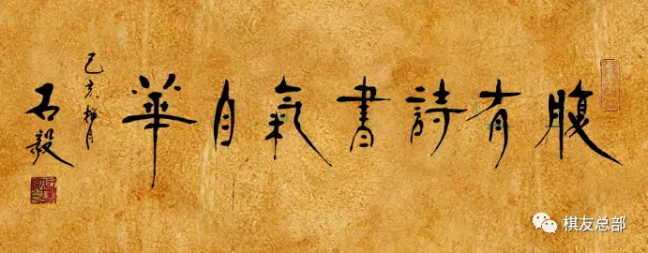 腹有詩書氣自華
己亥梅月
石毅
棋友总部